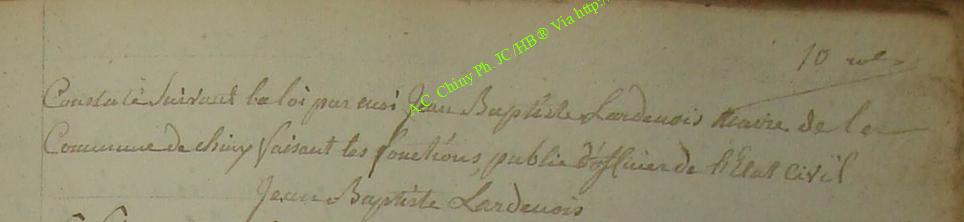 A.C. Chiny Ph. JC/HB ® Via http:/
10
Constaté Suivant la loi par moi Jean Baptiste Lardenois Maire de la
Commune de chiny faisant les fonctions, public d'officier de l'Etat civil
Jean Baptiste Lardenois